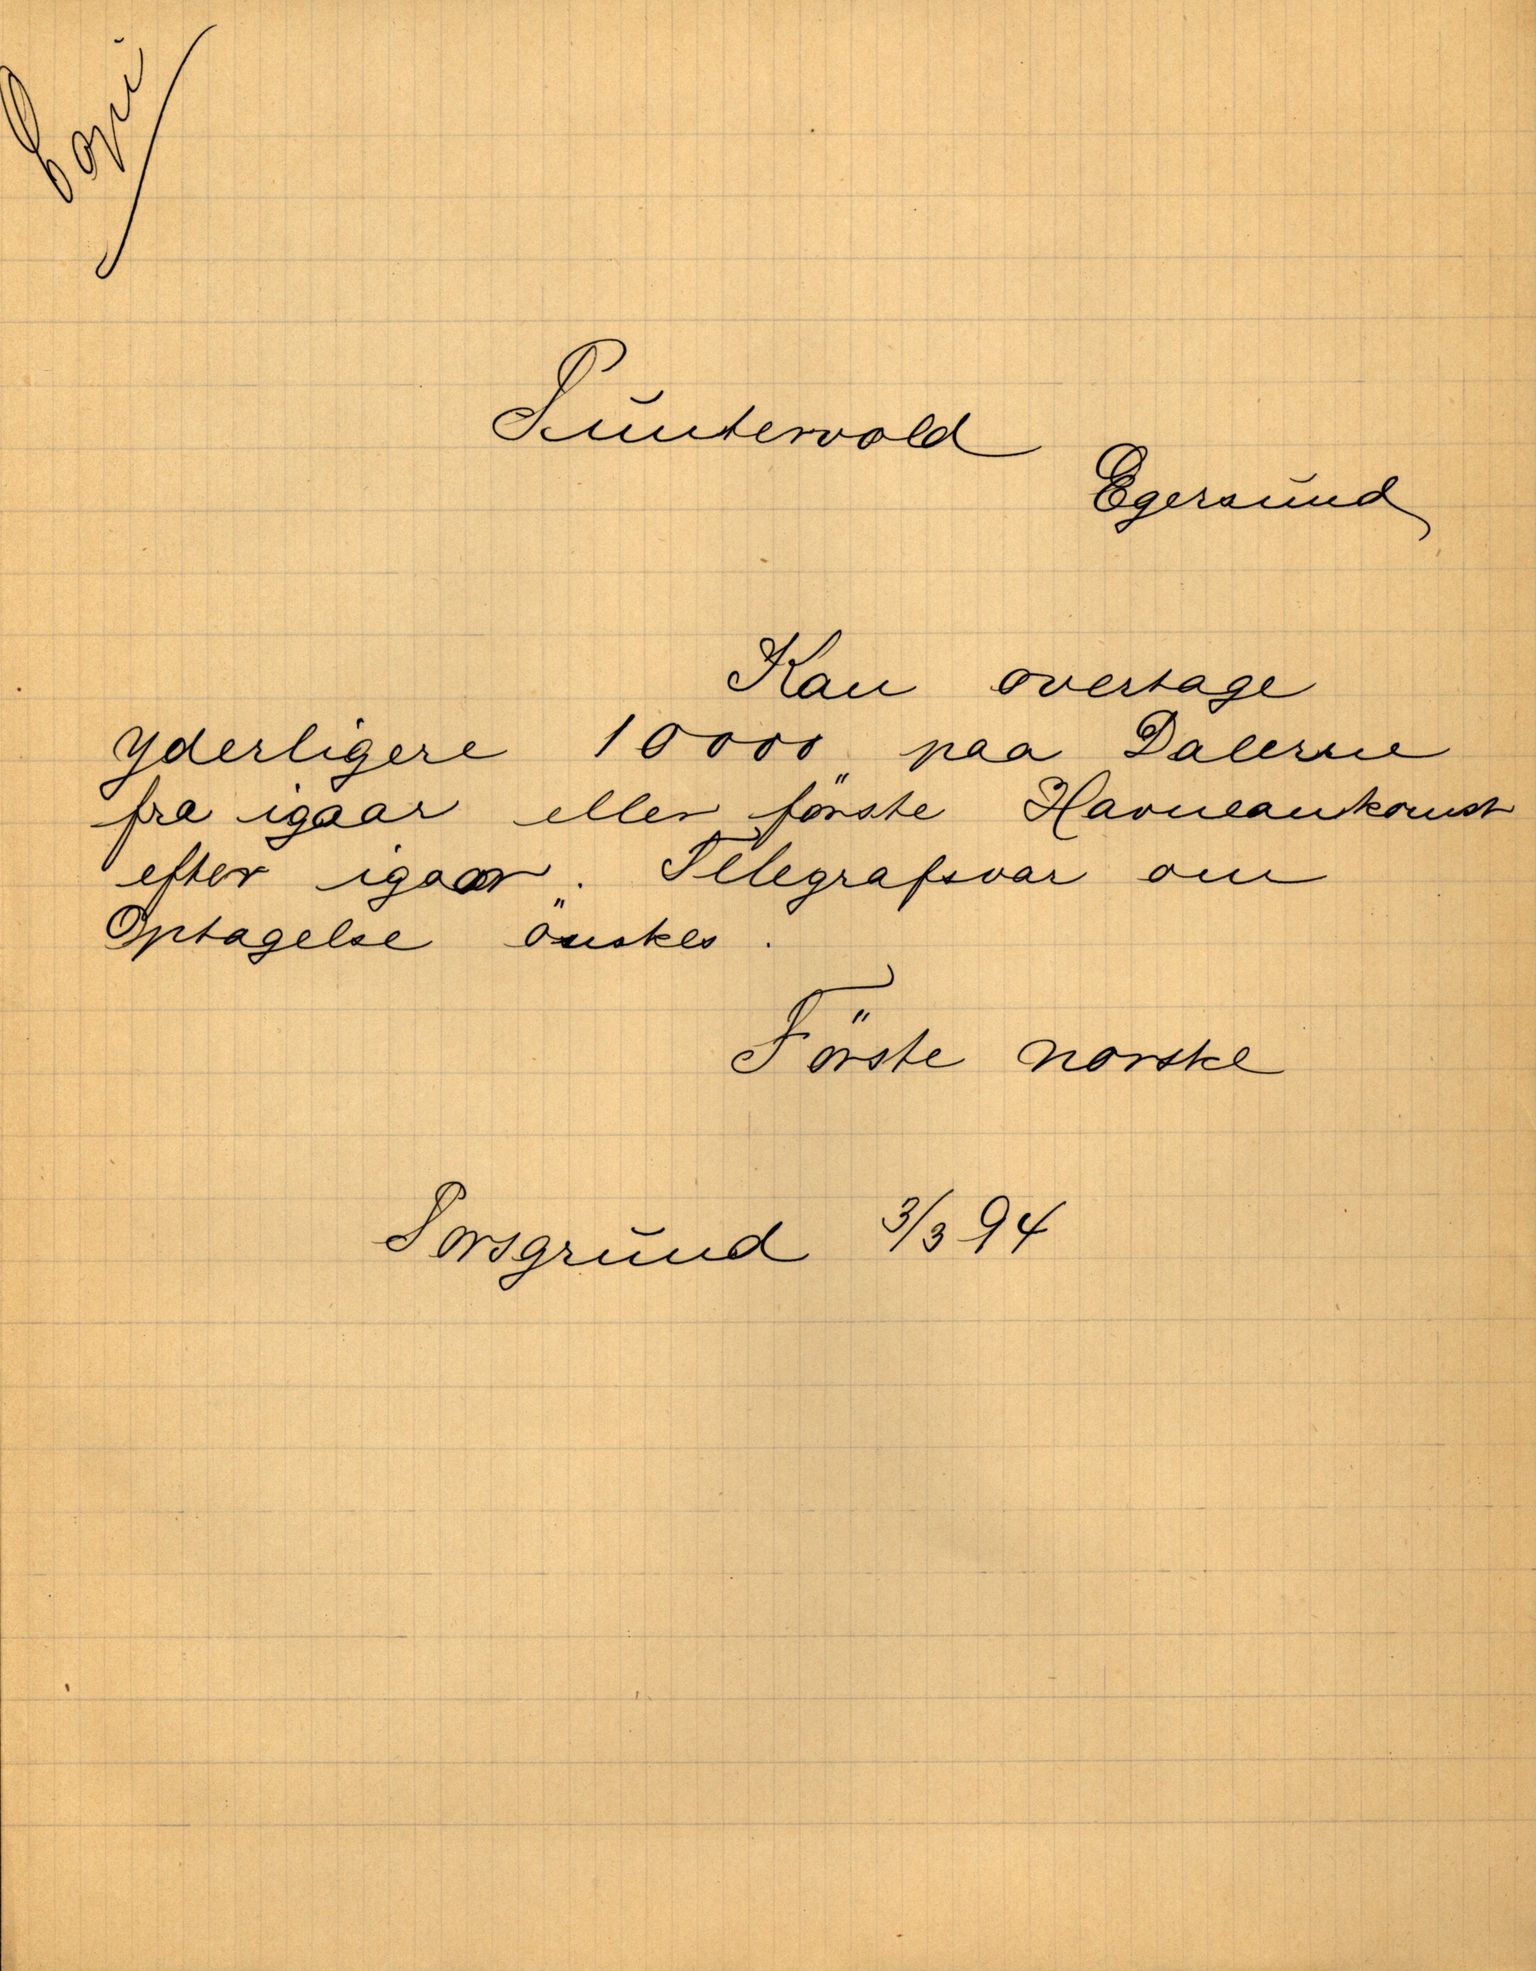 Copi
Puntervold
Egersund
Kan overtage
yderligere 10000 paa Dalerne
fra igaar eller förste Havneankomst
efter igaar. Telegrafsvar om
Optagelse önskes.
Förste norske
Porsgrund 3/3 94